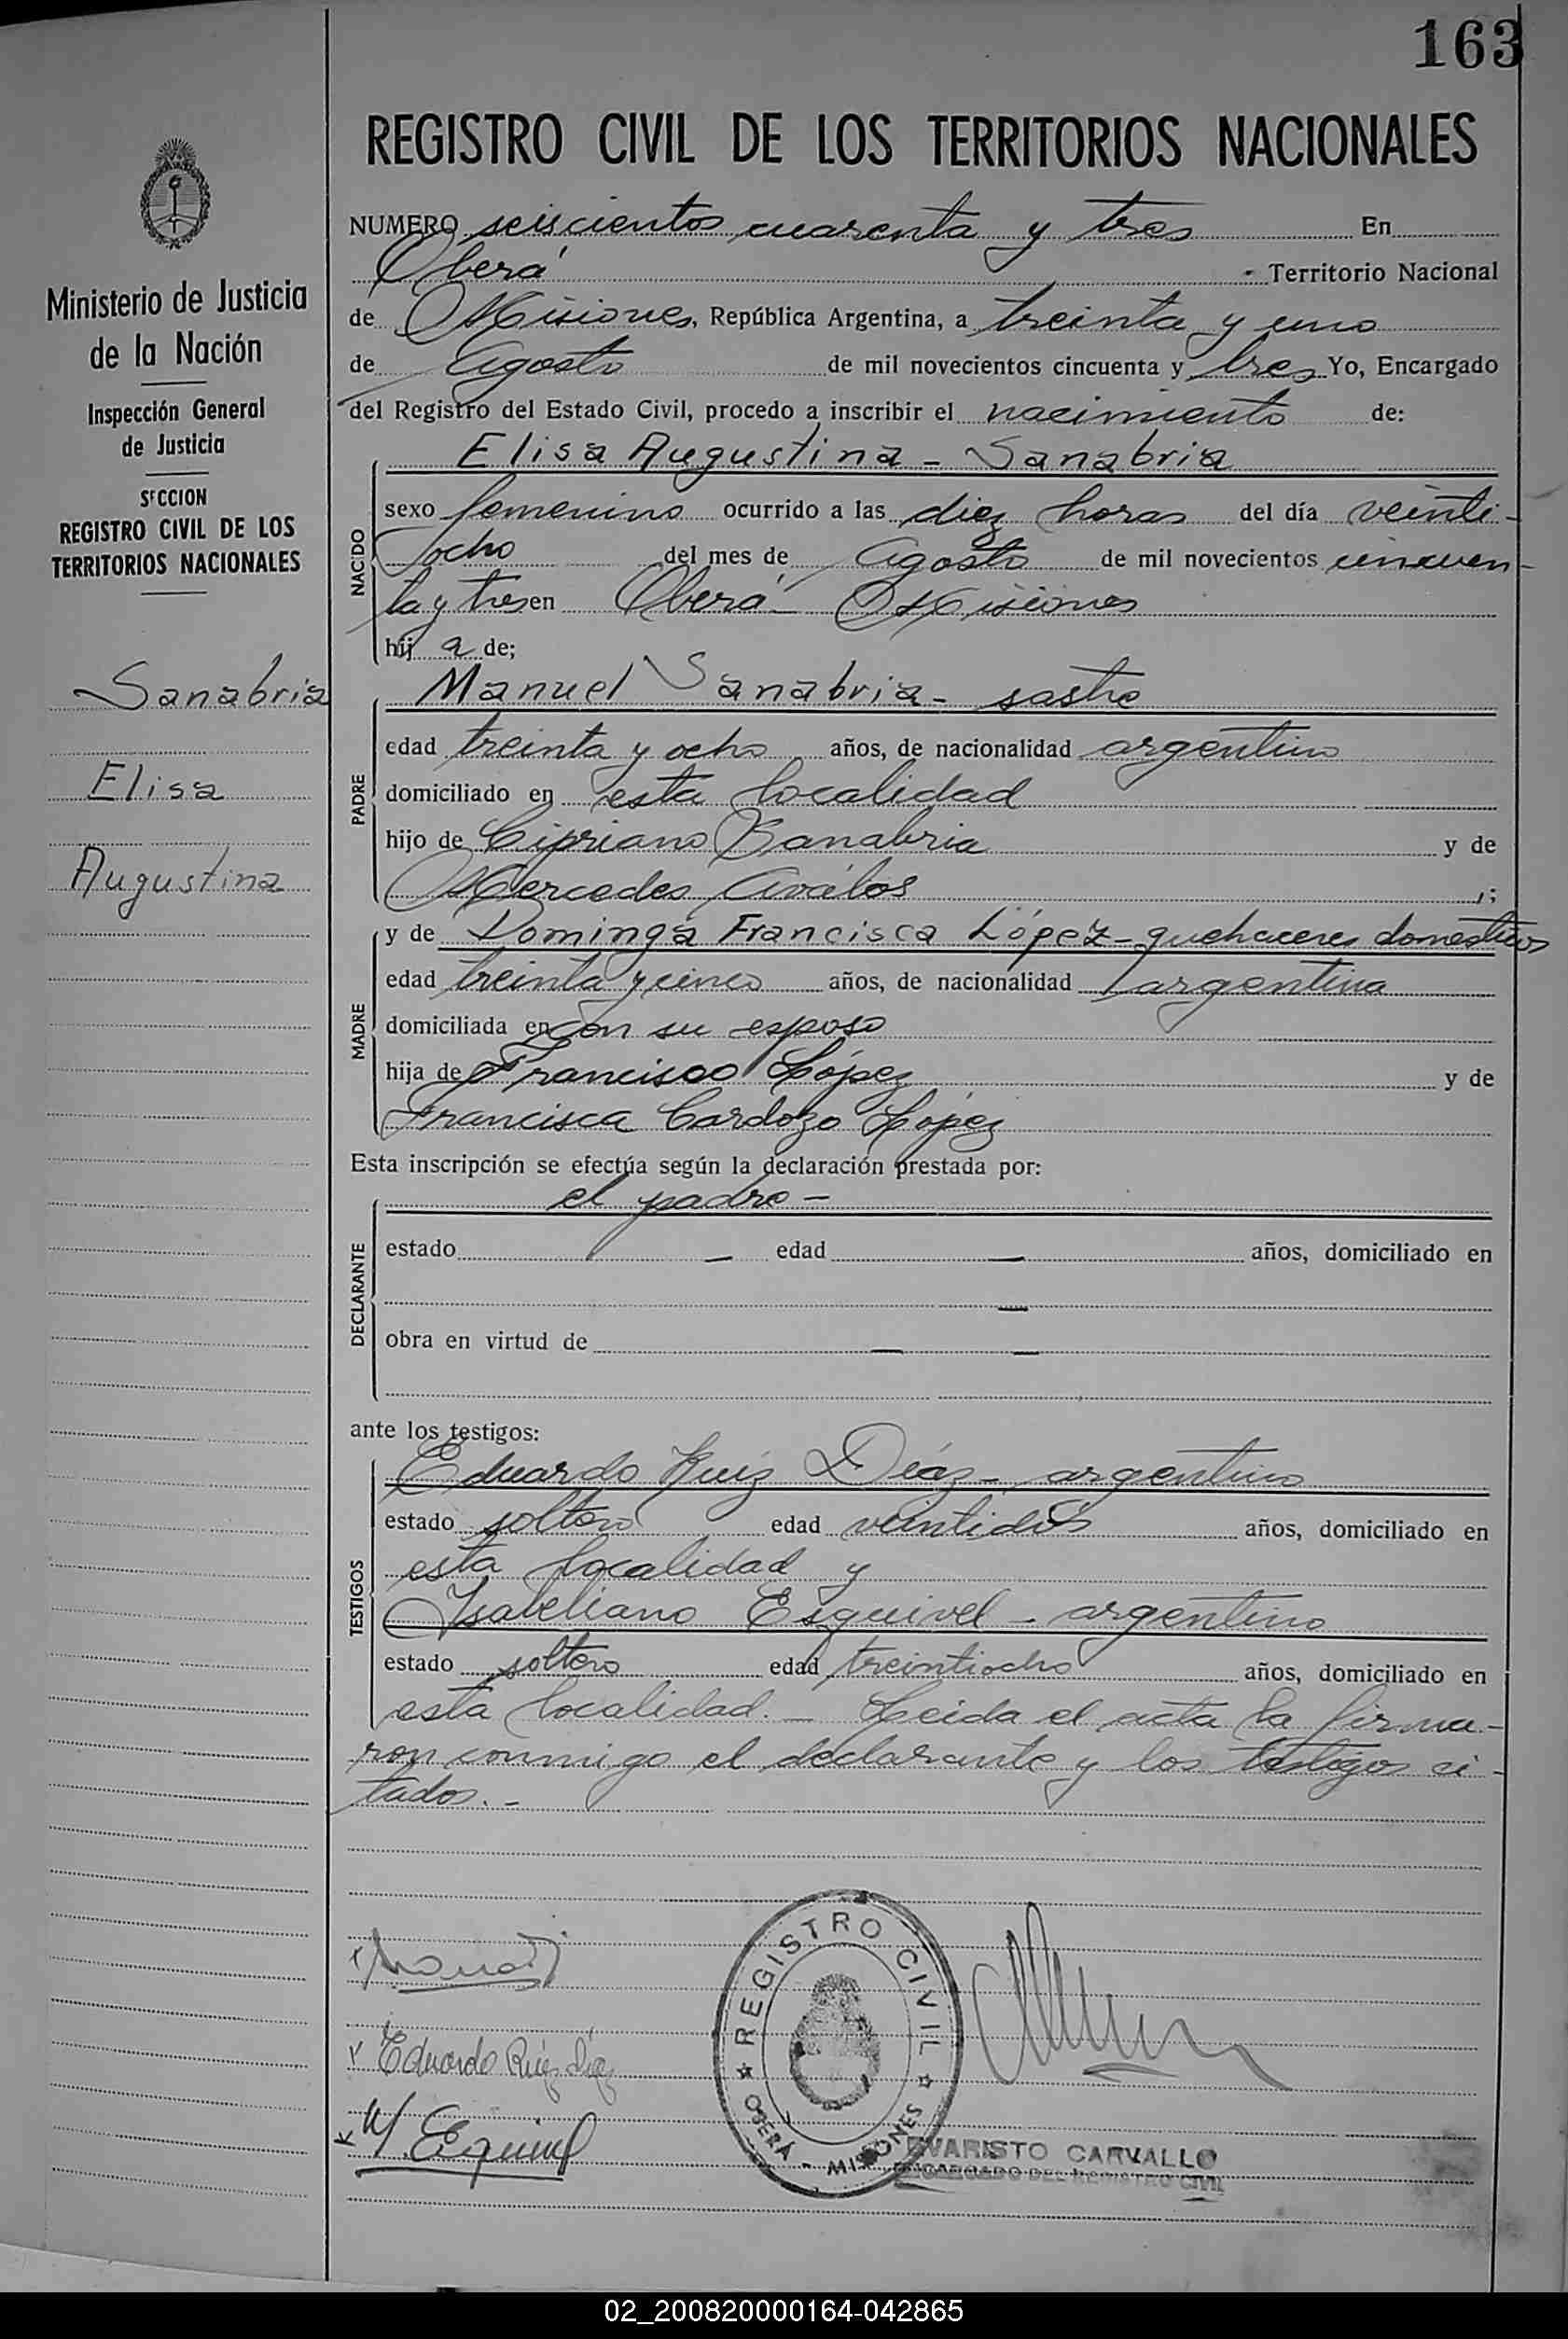 163
REGISTRO CIVIL DE LOS TERRITORIOS NACIONALES
Ministerio de Justicia
de la Nación
Inspección General
de Justicia
SECCION
REGISTRO CIVIL DE LOS
TERRITORIOS NACIONALES
Sanabria
Elisa
Augustina
NUMERO seiscientos cuarenta y tres En
Oberá - Territorio Nacional
de Misiones, República Argentina, a treinta y uno
de Agosto de mil novecientos cincuenta y tres Yo, Encargado
del Registro del Estado Civil, procedo a inscribir el nacimiento de:
Elisa Augustina - Sanabria
NACIDO
sexo femenino ocurrido a las diez horas del día veinti-
ocho del mes de Agosto de mil novecientos cincuen-
ta y tres en Oberá - Misiones
hij a de;
Manuel Sanabria - sastre
PADRE
edad treinta y ocho años, de nacionalidad argentino
domiciliado en esta localidad
hijo de Cipriano Sanabria y de
Mercedes Avalos ,;
y de Dominga Francisca López - quehaceres domesticos
MADRE
edad treinta y cinco años, de nacionalidad argentina
domiciliada en con su esposo
hija de Francisco López y de
Francisca Cardozo López
Esta inscripción se efectúa según la declaración prestada por:
el padre -
DECLARANTE
estado — edad — años, domiciliado en
—
obra en virtud de — —
ante los testigos:
Eduardo Ruiz Díaz - argentino
TESTIGOS
estado soltero edad veintidós años, domiciliado en
esta localidad y
Ysabeliano Esquivel - argentino
estado soltero edad treintiocho años, domiciliado en
esta localidad. - Leida el acta la firma-
ron conmigo el declarante y los testigos ci-
tados. -
Eduardo Ruiz Díaz
REGISTRO CIVIL
OBERÁ - MISIONES
EVARISTO CARVALLO
ENCARGADO DEL REGISTRO CIVIL
02_200820000164-042865